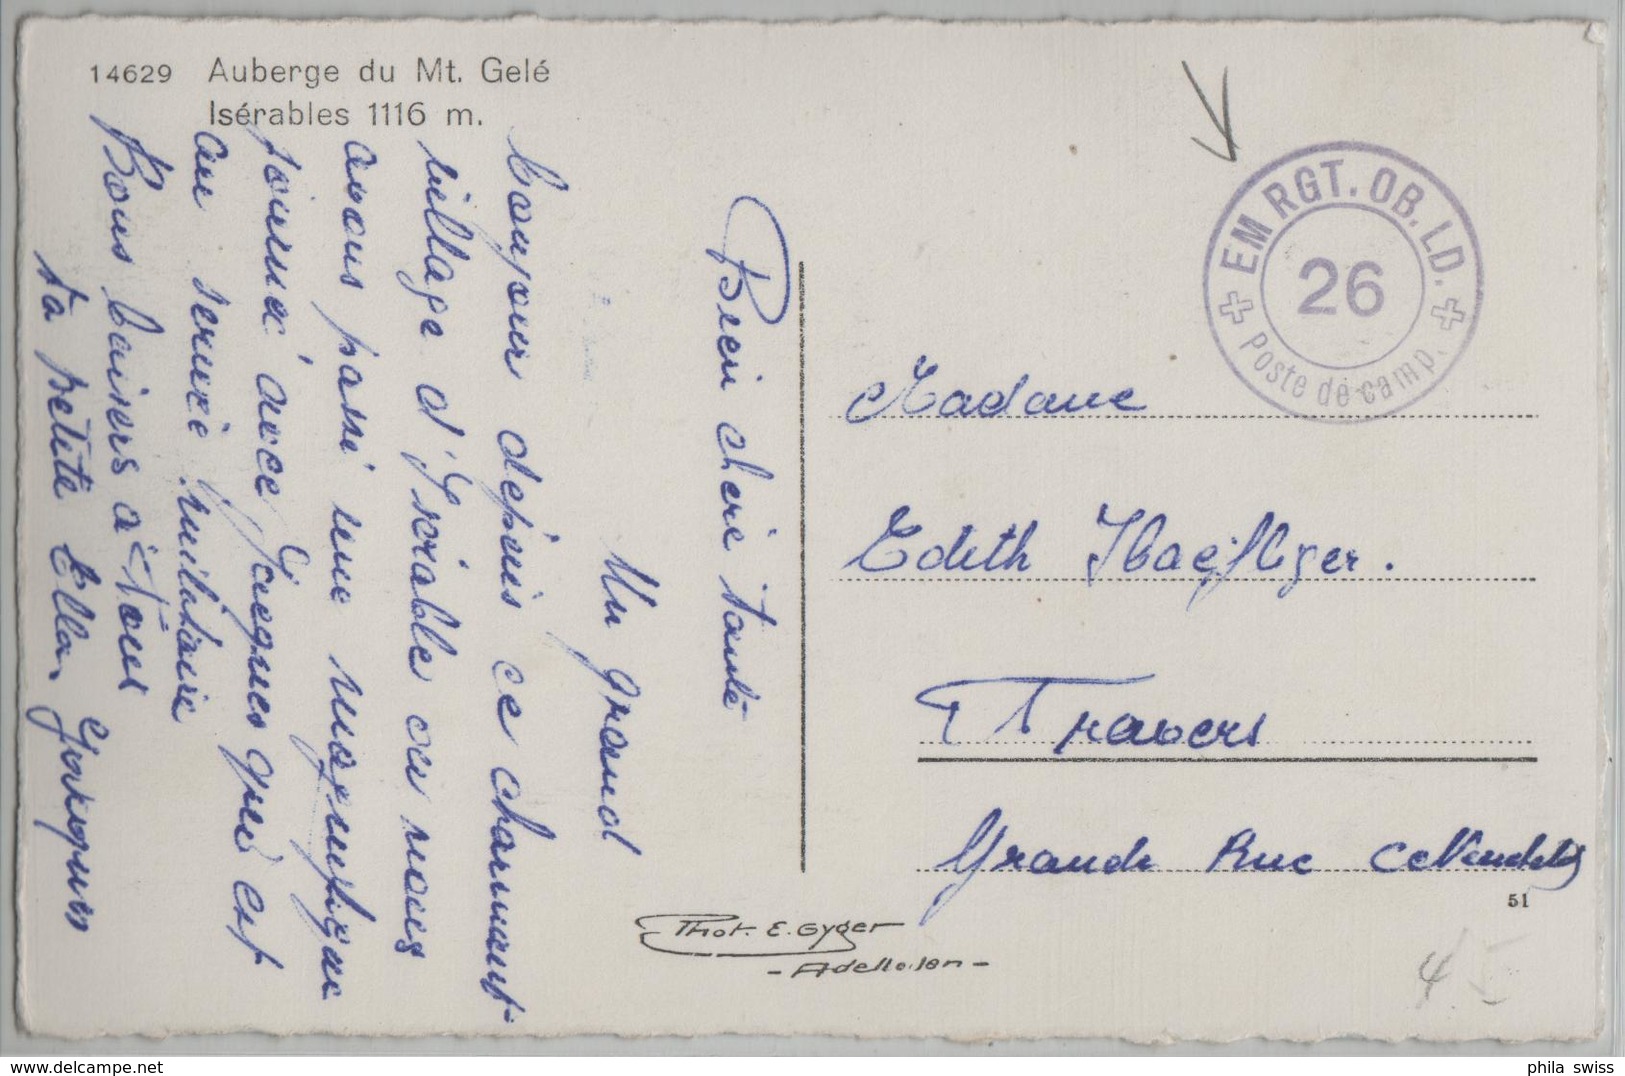 14629 Auberge du Mt. Gelé
Isérables 1116 m.
Bien chère tante
Un grand
bonjour depuis ce charmant
village d'Isérables ou nous
avons passé une magnifique
journée avec Jacques qui est
au service militaire
Bons baisers à tous
ta petite Ella.
EM RGT. OB. LD.
26
Poste de camp.
Madame
Edith Haefliger.
Travers
Grande Rue
51
Phot. E. Gyger
- Adelboden -
4.
phila swiss